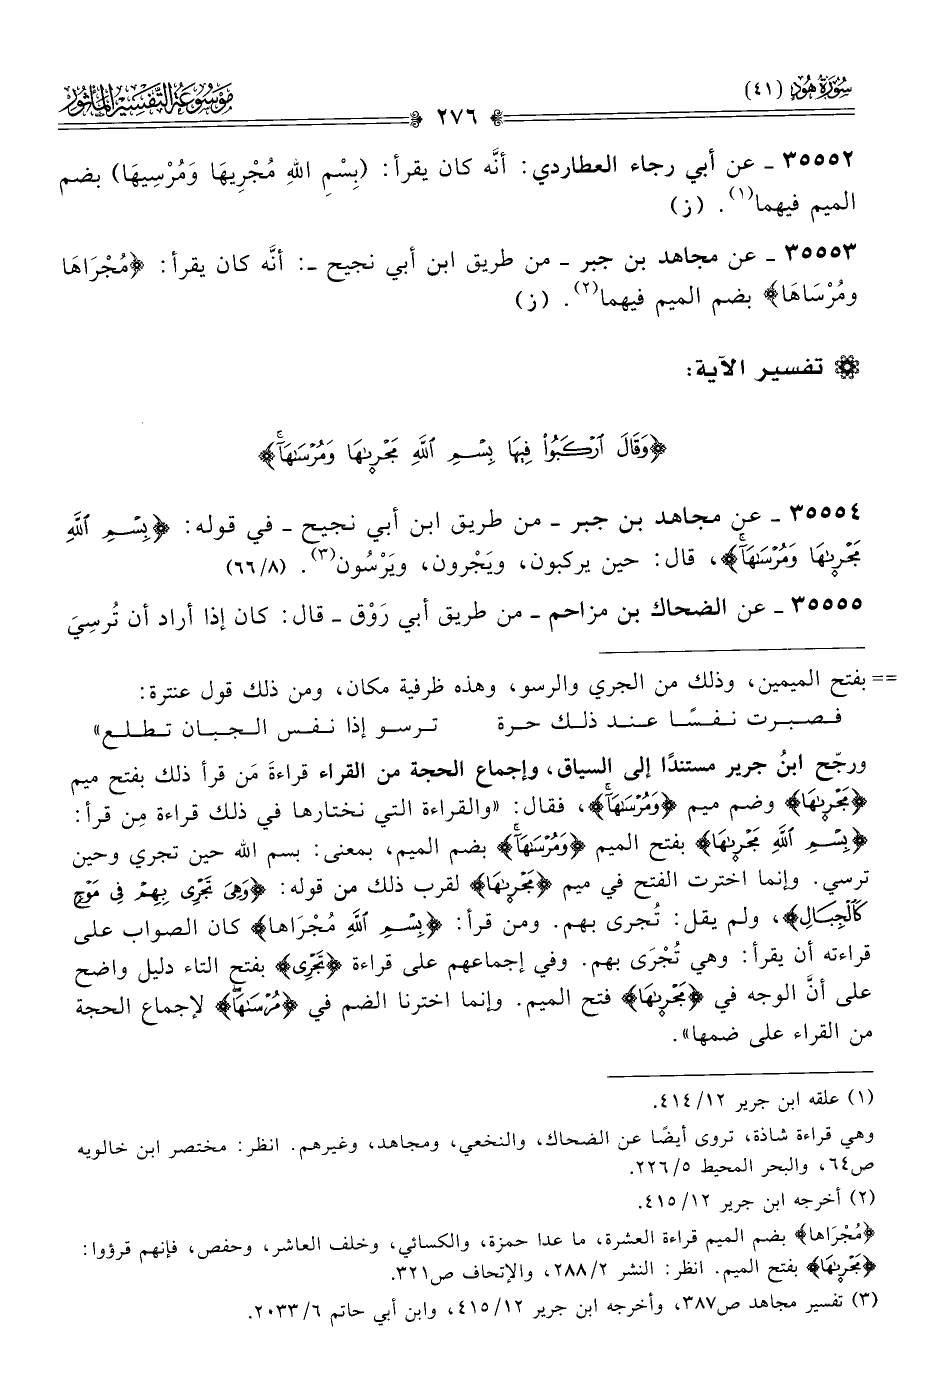 سُورَةُ هُودٍ (٤١)
٢٧٦
مَوْسُوعَةُ التَّفْسِيرِ المَأْثُورِ
٣٥٥٥٢ ـ عن أبي رجاء العطاردي: أنَّه كان يقرأ: (بِسْمِ اللهِ مُجْرِيهَا وَمُرْسِيهَا) بضم
الميم فيهما(١). (ز)
٣٥٥٥٣ ـ عن مجاهد بن جبر ـ من طريق ابن أبي نجيح ـ: أنَّه كان يقرأ: ﴿مُجْرَاهَا
ومُرْسَاهَا﴾ بضم الميم فيهما(٢). (ز)
تفسير الآية:
﴿وَقَالَ ٱرْكَبُواْ فِيهَا بِسْمِ ٱللَّهِ مَجْر۪ىٰهَا وَمُرْسَىٰهَآ﴾
٣٥٥٥٤ ـ عن مجاهد بن جبر ـ من طريق ابن أبي نجيح ـ في قوله: ﴿بِسْمِ ٱللَّهِ
مَجْر۪ىٰهَا وَمُرْسَىٰهَآ﴾، قال: حين يركبون، ويَجْرون، ويَرْسُون(٣). (٦٦/٨)
٣٥٥٥٥ ـ عن الضحاك بن مزاحم ـ من طريق أبي رَوْق ـ قال: كان إذا أراد أن تُرسِيَ
== بفتح الميمين، وذلك من الجري والرسو، وهذه ظرفية مكان، ومن ذلك قول عنترة:
فصبرت نفسًا عند ذلك حرة ترسو إذا نفس الجبان تطلع»
ورجّح ابنُ جرير مستندًا إلى السياق، وإجماع الحجة من القراء قراءةَ مَن قرأ ذلك بفتح ميم
﴿مَجْر۪ىٰهَا﴾ وضم ميم ﴿وَمُرْسَىٰهَآ﴾، فقال: «والقراءة التي نختارها في ذلك قراءة مِن قرأ:
﴿بِسْمِ ٱللَّهِ مَجْر۪ىٰهَا﴾ بفتح الميم ﴿وَمُرْسَىٰهَآ﴾ بضم الميم، بمعنى: بسم الله حين تجري وحين
ترسي. وإنما اخترت الفتح في ميم ﴿مَجْر۪ىٰهَا﴾ لقرب ذلك من قوله: ﴿وَهِىَ تَجْرِى بِهِمْ فِى مَوْجٍ
كَٱلْجِبَالِ﴾، ولم يقل: تُجرى بهم. ومن قرأ: ﴿بِسْمِ ٱللَّهِ مُجْرَاها﴾ كان الصواب على
قراءته أن يقرأ: وهي تُجْرَى بهم. وفي إجماعهم على قراءة ﴿تَجْرِى﴾ بفتح التاء دليل واضح
على أنَّ الوجه في ﴿مَجْر۪ىٰهَا﴾ فتح الميم. وإنما اخترنا الضم في ﴿مُرْسَىٰهَآ﴾ لإجماع الحجة
من القراء على ضمها».
(١) علقه ابن جرير ١٢/ ٤١٤.
وهي قراءة شاذة، تروى أيضًا عن الضحاك، والنخعي، ومجاهد، وغيرهم. انظر: مختصر ابن خالويه
ص٦٤، والبحر المحيط ٥/ ٢٢٦.
(٢) أخرجه ابن جرير ١٢/ ٤١٥.
﴿مُجْرَاها﴾ بضم الميم قراءة العشرة، ما عدا حمزة، والكسائي، وخلف العاشر، وحفص، فإنهم قرؤوا:
﴿مَجْر۪ىٰهَا﴾ بفتح الميم. انظر: النشر ٢/ ٢٨٨، والإتحاف ص٣٢١.
(٣) تفسير مجاهد ص٣٨٧، وأخرجه ابن جرير ١٢/ ٤١٥، وابن أبي حاتم ٦/ ٢٠٣٣.